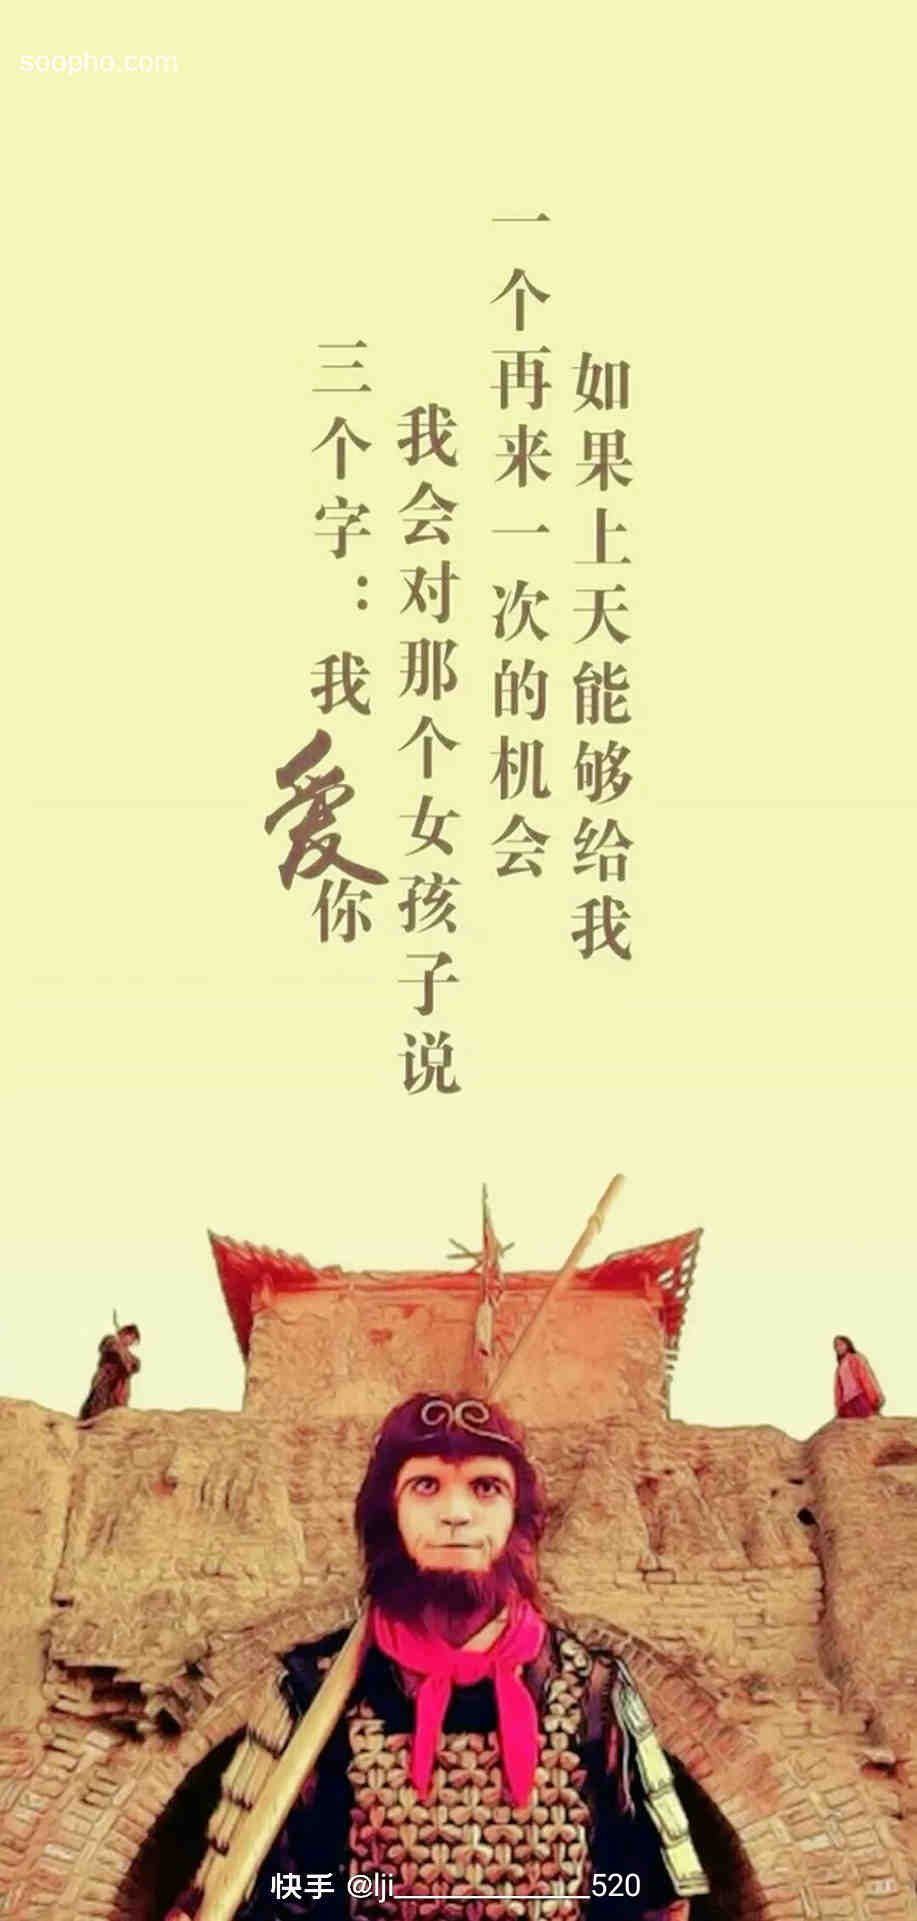 soopho.com
如果上天能够给我
一个再来一次的机会
我会对那个女孩子说
三个字：我爱你
快手 @lji____________520